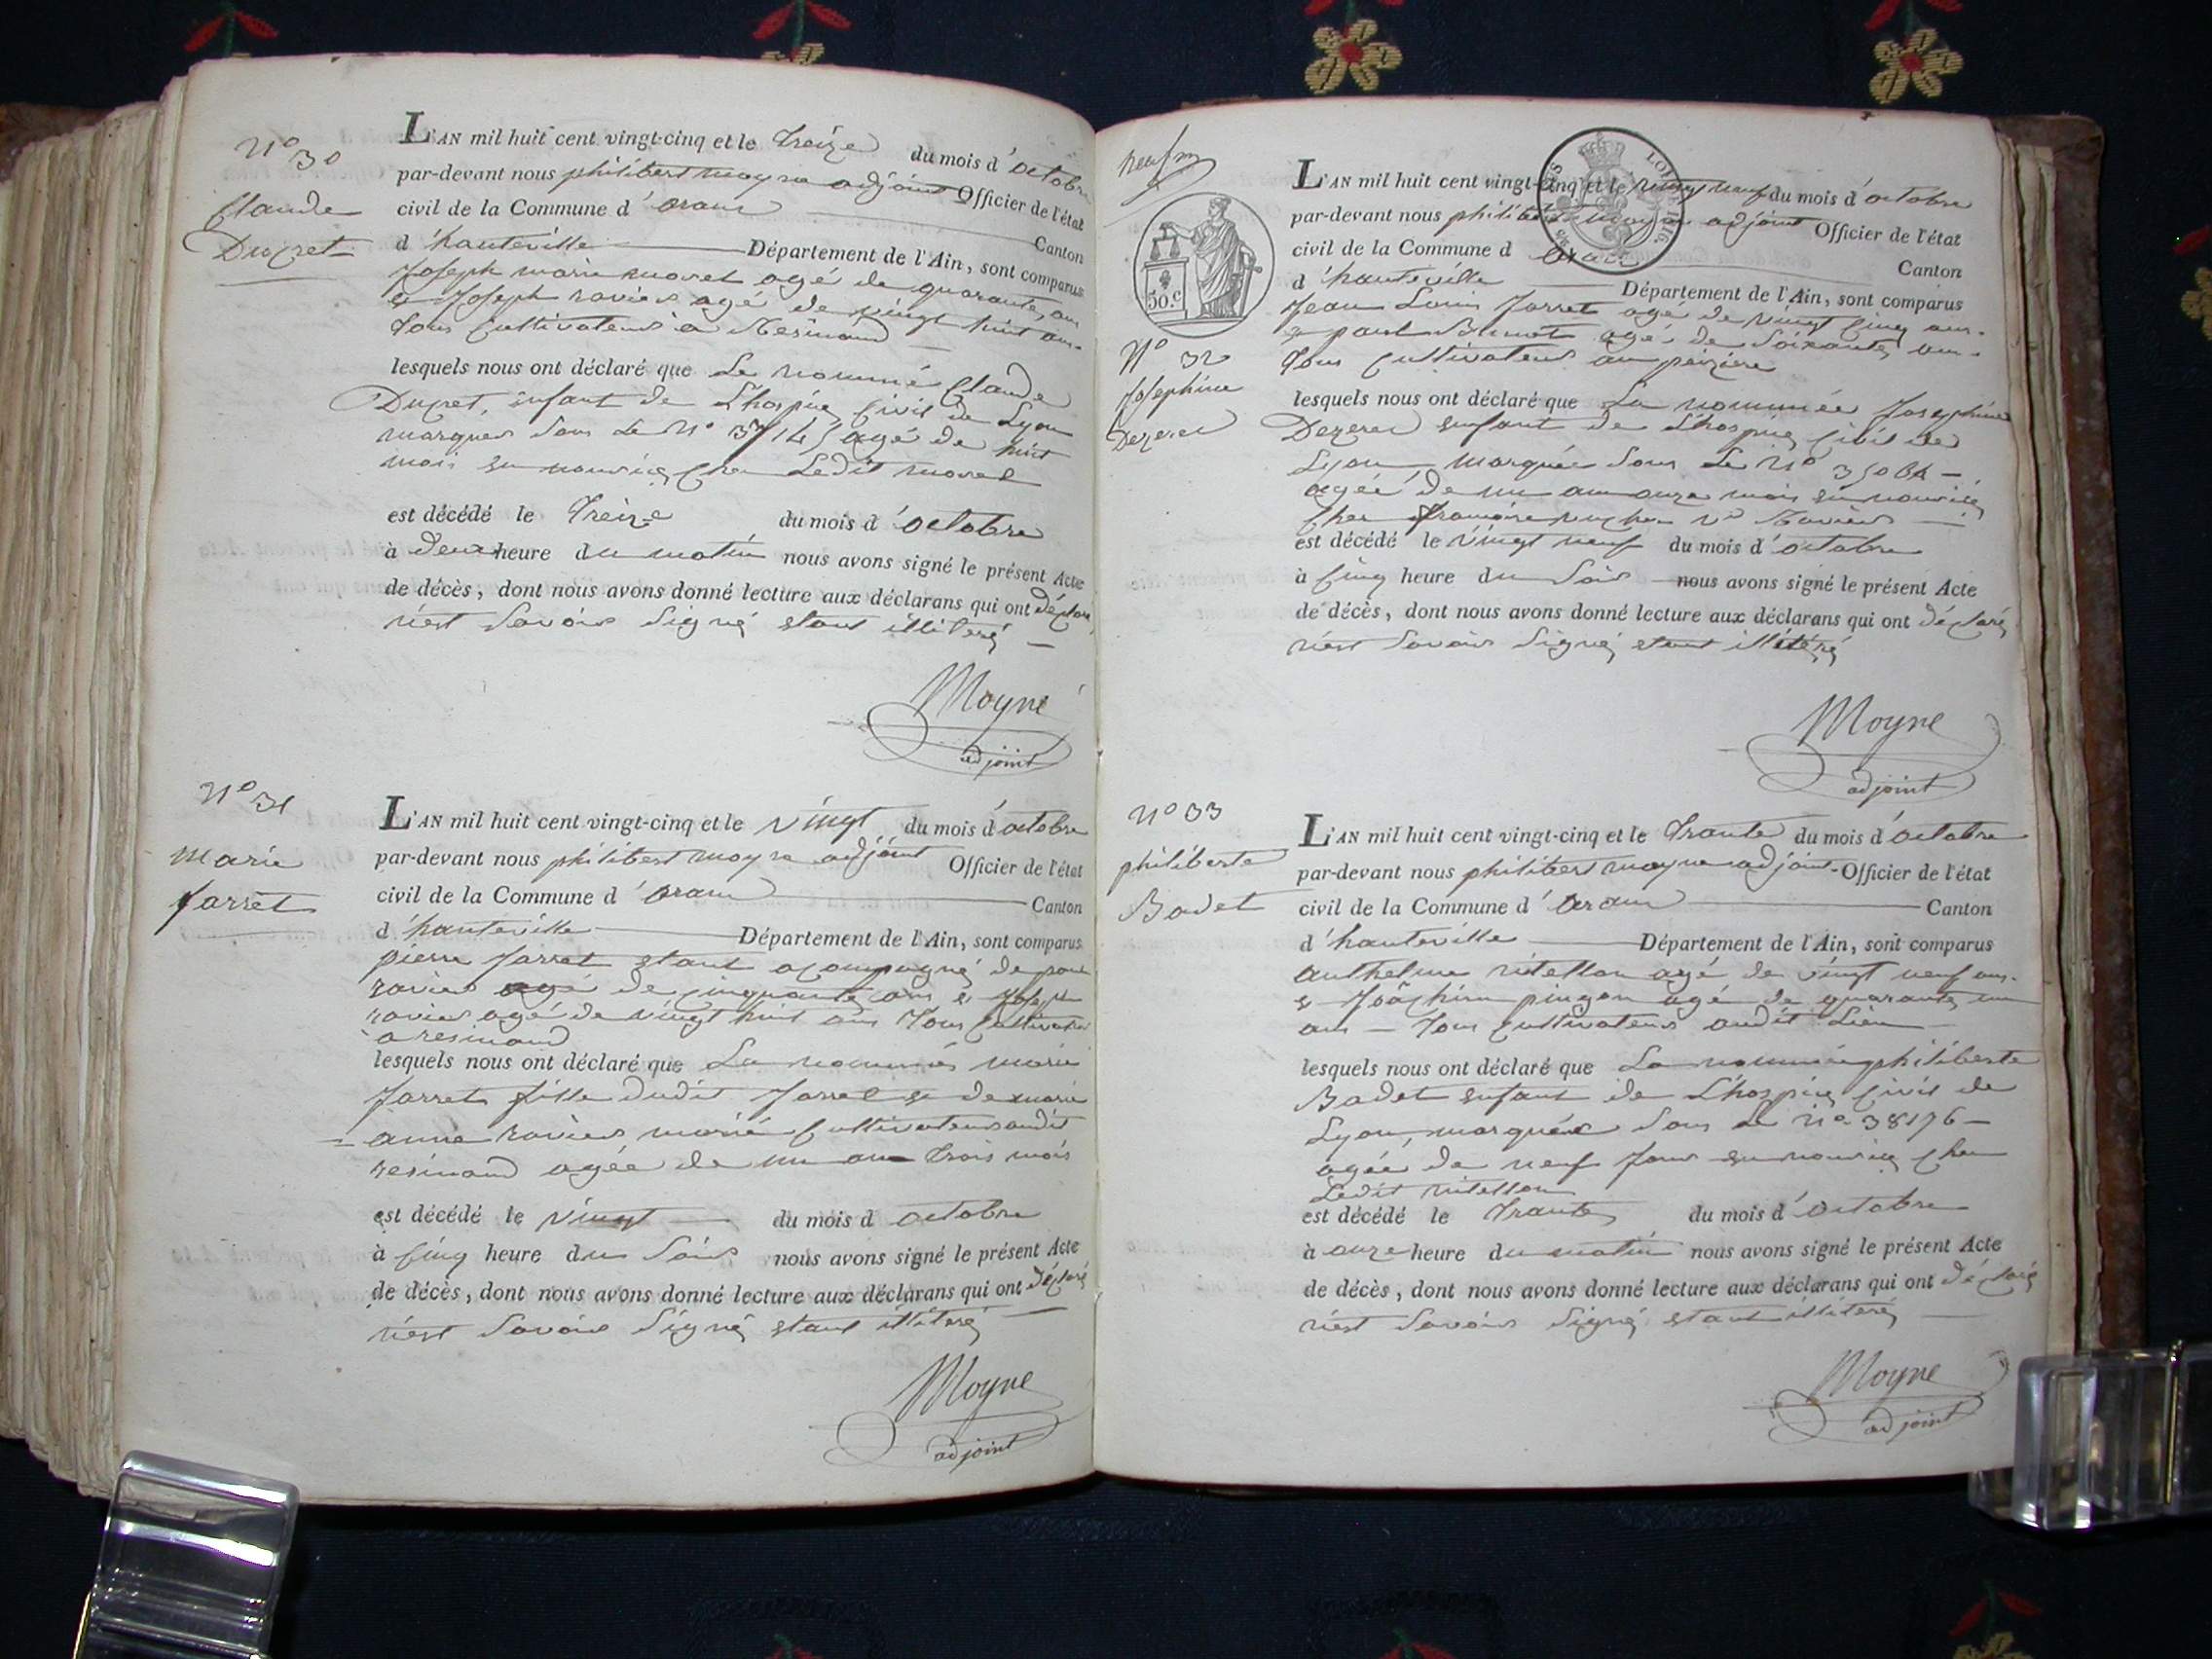 N° 30
Claude
Ducret
L'AN mil huit cent vingt-cinq et le Treize du mois d'octobre
par-devant nous philibert moyne adjoint Officier de l'état
civil de la Commune d'aranc Canton
d'hauteville Département de l'Ain, sont comparus
Joseph marie morel agé de quarante ans
& Joseph ravier agé de vingt huit ans
Tous Cultivateurs a Resinand
lesquels nous ont déclaré que Le nommé Claude
Ducret, enfant de L'hospice Civil de Lyon
marquer sous Le N° agé de huit
mois en nourrice chez Ledit morel
est décédé le Treize du mois d'octobre
à deux heure du matin nous avons signé le présent Acte
de décès, dont nous avons donné lecture aux déclarans qui ont déclaré
n'est savoir signé etant illiteré
Moyne
adjoint
N° 31
Marie
Jarret
L'AN mil huit cent vingt-cinq et le vingt du mois d'octobre
par-devant nous philibert moyne adjoint Officier de l'état
civil de la Commune d'aranc Canton
d'hauteville Département de l'Ain, sont comparus
pierre Jarret etant acompagné de
ravier agé de cinquante ans & Joseph
ravier agé de vingt huit ans Tous Cultivateurs
a resinand
lesquels nous ont déclaré que La nommée marie
Jarret fille dudit Jarret & de marie
anne ravier marié Cultivateurs audit
resinand agée de un an trois mois
est décédé le vingt du mois d octobre
à Cinq heure du Soir nous avons signé le présent Acte
de décès, dont nous avons donné lecture aux déclarans qui ont déclaré
n'est savoir signé etant illiteré
Moyne
adjoint
neuf
50.c
N° 32
Josephine
Dezerel
L'AN mil huit cent vingt-cinq et le vingt neuf du mois d'octobre
par-devant nous philibert moyne adjoint Officier de l'état
civil de la Commune d aranc Canton
d'hauteville Département de l'Ain, sont comparus
Jean Louis Jarret agé de vingt Cinq ans
& paul agé de soixante ans
Tous Cultivateurs
lesquels nous ont déclaré que La nommée Josephine
Dezerel enfant de L'hospice Civil de
Lyon marquée sous Le N°
agée de un an onze mois en nourrice
chez
est décédé le vingt neuf du mois d'octobre
à Cinq heure du Soir nous avons signé le présent Acte
de décès, dont nous avons donné lecture aux déclarans qui ont déclaré
n'est savoir signé etant illitéré
Moyne
adjoint
N° 33
philiberte
Badet
L'AN mil huit cent vingt-cinq et le Trante du mois d'octobre
par-devant nous philibert moyne adjoint Officier de l'état
civil de la Commune d'aranc Canton
d'hauteville Département de l'Ain, sont comparus
anthelme ritellon agé de vingt neuf ans
& Joachim pingon agé de quarante un
ans Tous Cultivateurs audit Lieu
lesquels nous ont déclaré que La nommée philiberte
Badet enfant de L'hospice Civil de
Lyon, marquée sous le n° 38176
agée de neuf Jours en nourrice chez
Ledit ritellon
est décédé le Trante du mois d'octobre
à onze heure du matin nous avons signé le présent Acte
de décès, dont nous avons donné lecture aux déclarans qui ont déclaré
n'est savoir signé etant illiteré
Moyne
adjoint